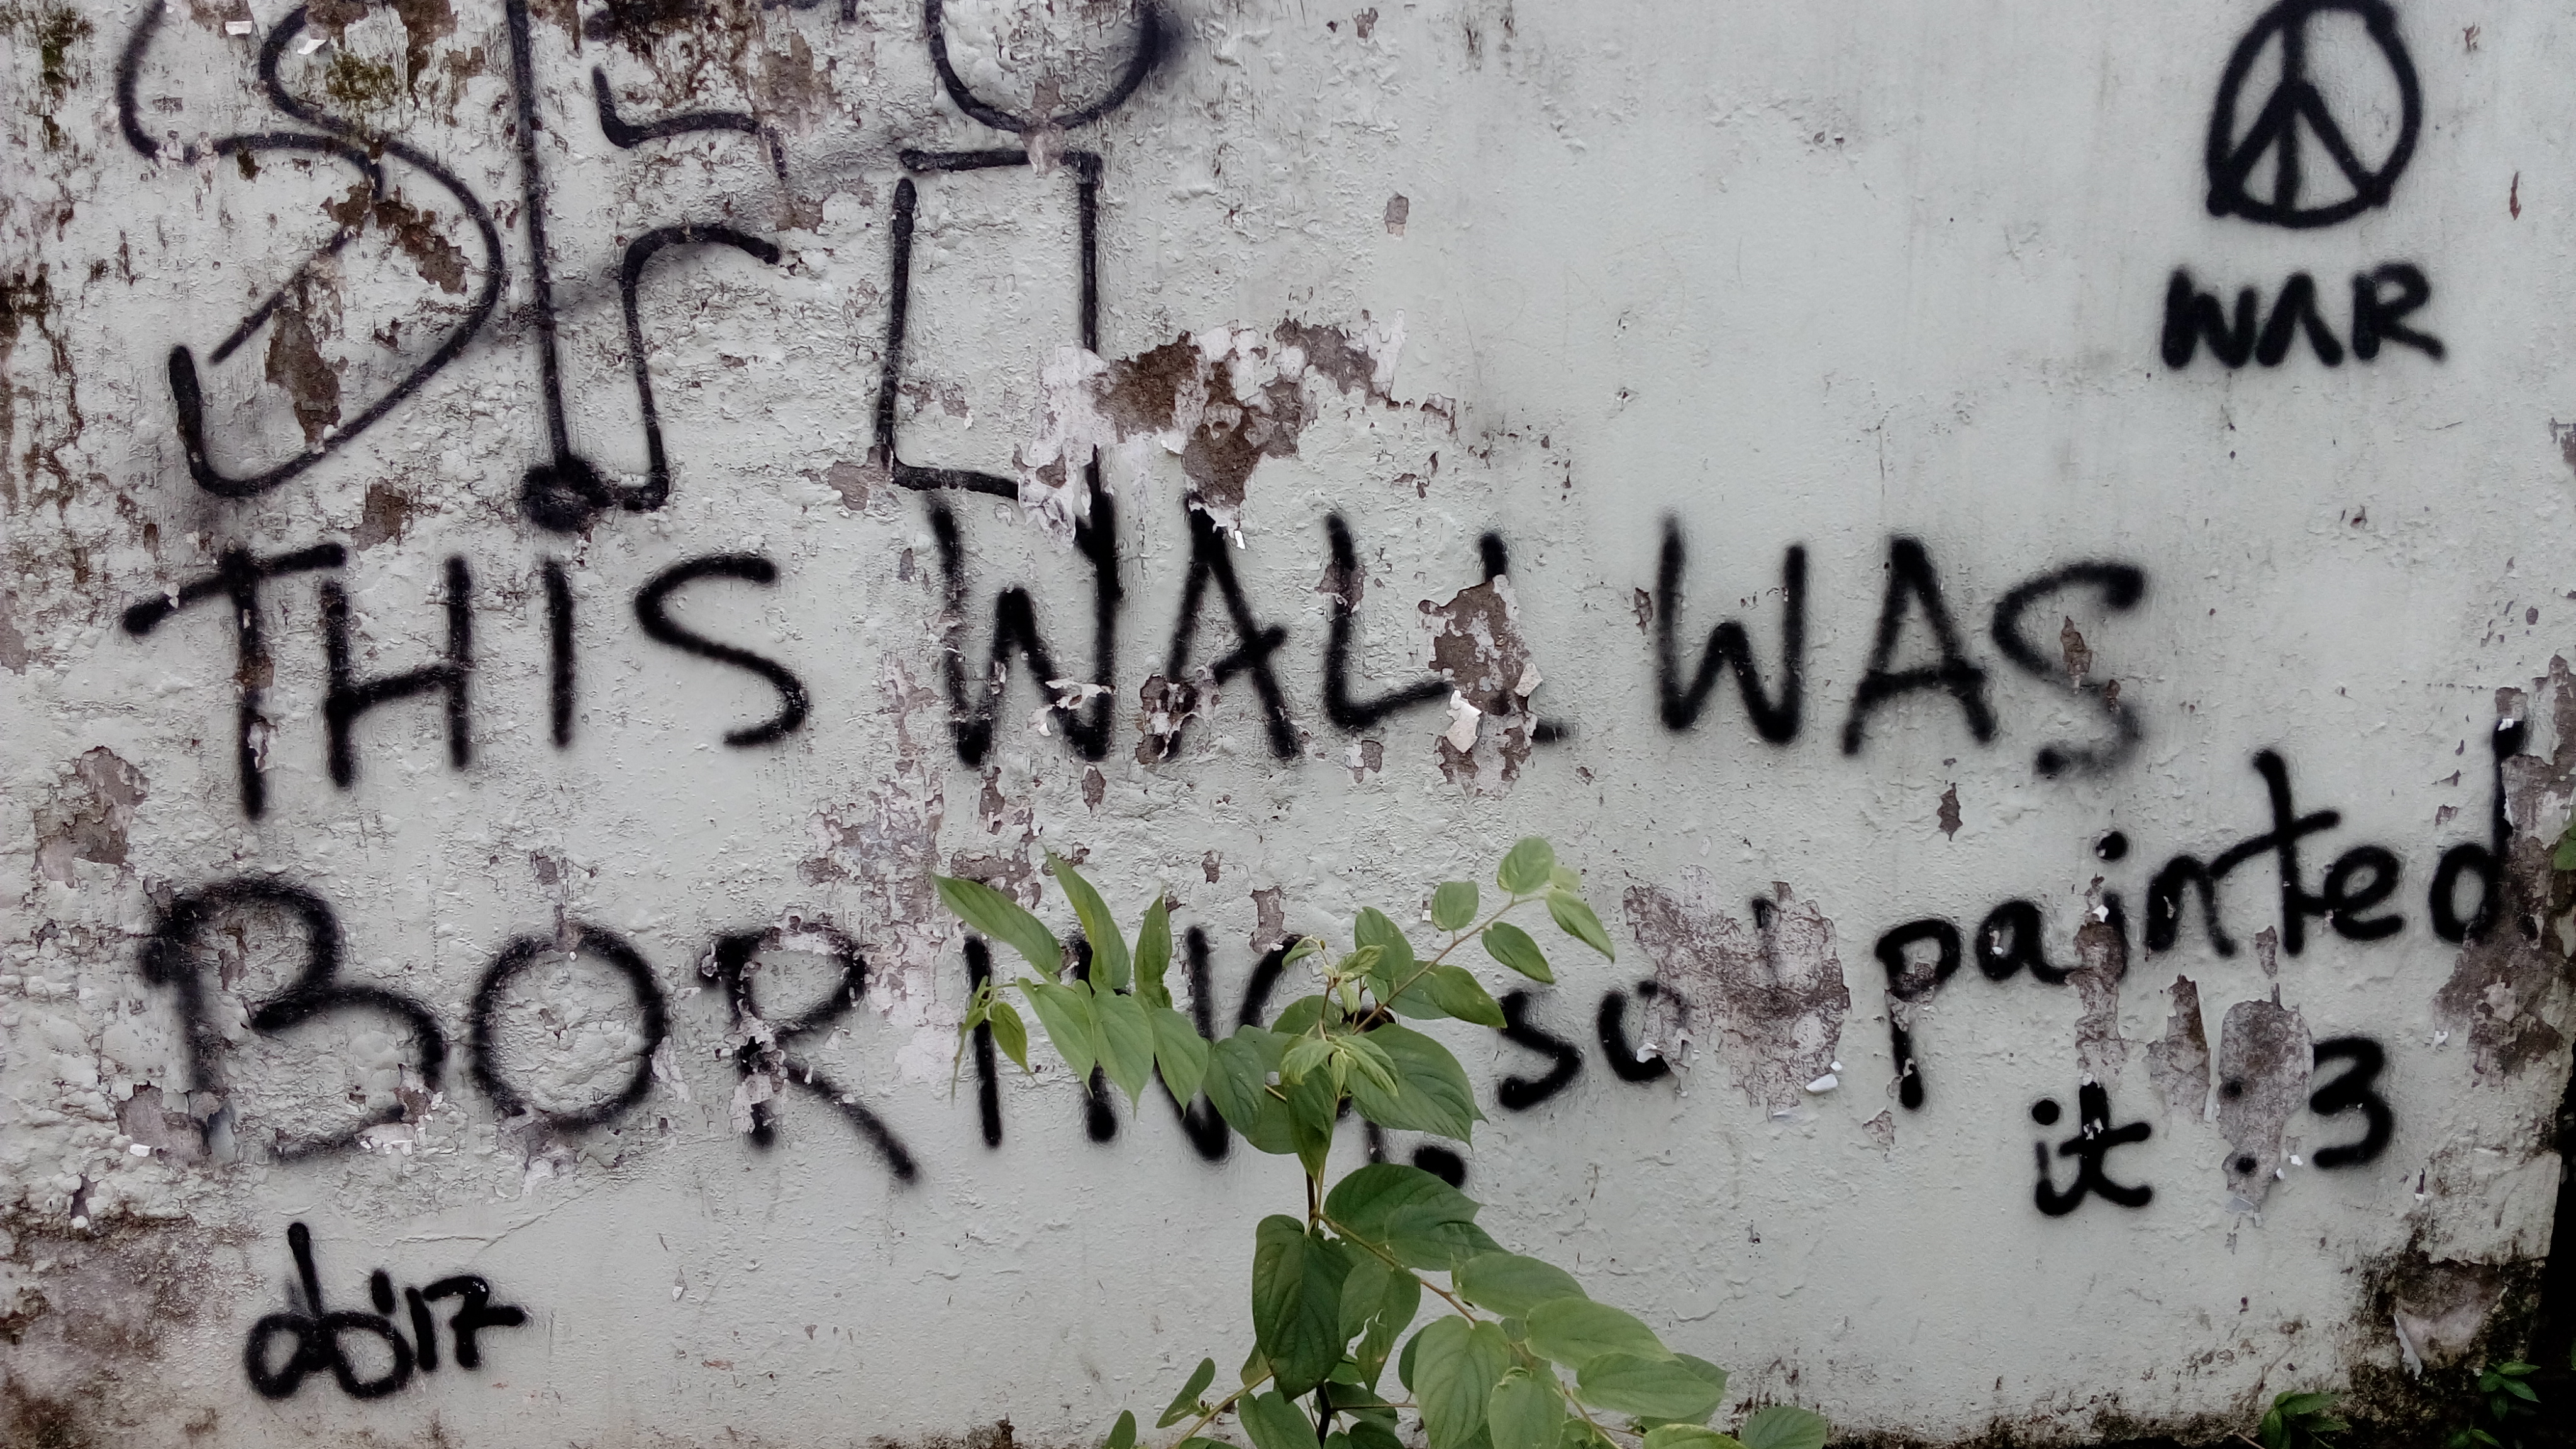 WAR
THIS WALL WAS
BORING. so I painted
it :3
abir